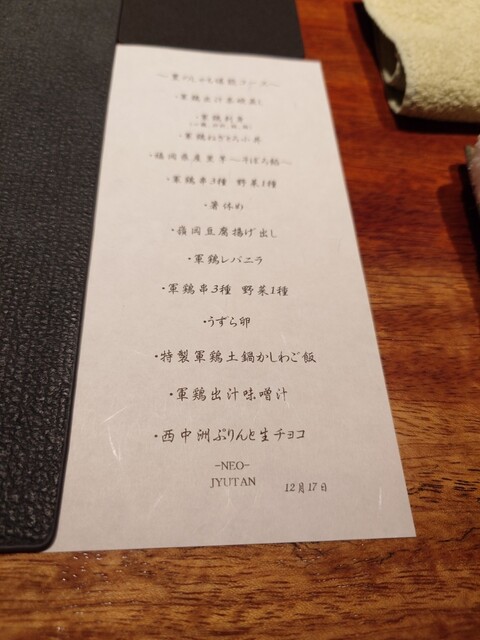 ・軍鶏出汁茶碗蒸し
・軍鶏刺身
・軍鶏ねぎとろ小丼
・福岡県産里芋〜そぼろ餡〜
・軍鶏串3種 野菜1種
・箸休め
・嶺岡豆腐揚げ出し
・軍鶏レバニラ
・軍鶏串3種 野菜1種
・うずら卵
・特製軍鶏土鍋かしわご飯
・軍鶏出汁味噌汁
・西中洲ぷりんと生チョコ
-NEO-
JYUTAN
12月17日